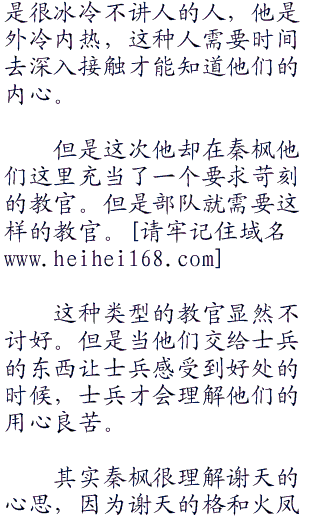 是很冰冷不讲人的人，他是
外冷内热，这种人需要时间
去深入接触才能知道他们的
内心。
但是这次他却在秦枫他
们这里充当了一个要求苛刻
的教官。但是部队就需要这
样的教官。[请牢记住域名
www.heihei168.com]
这种类型的教官显然不
讨好。但是当他们交给士兵
的东西让士兵感受到好处的
时候，士兵才会理解他们的
用心良苦。
其实秦枫很理解谢天的
心思，因为谢天的格和火凤